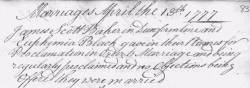 Marriages April the 18th 1777 83
James Scott Baker in Dunfermline and
Euphemia Black gave in their Names for
Proclamation in Order to Marriage and being
regularly proclaimed and no objections being
offered they were married